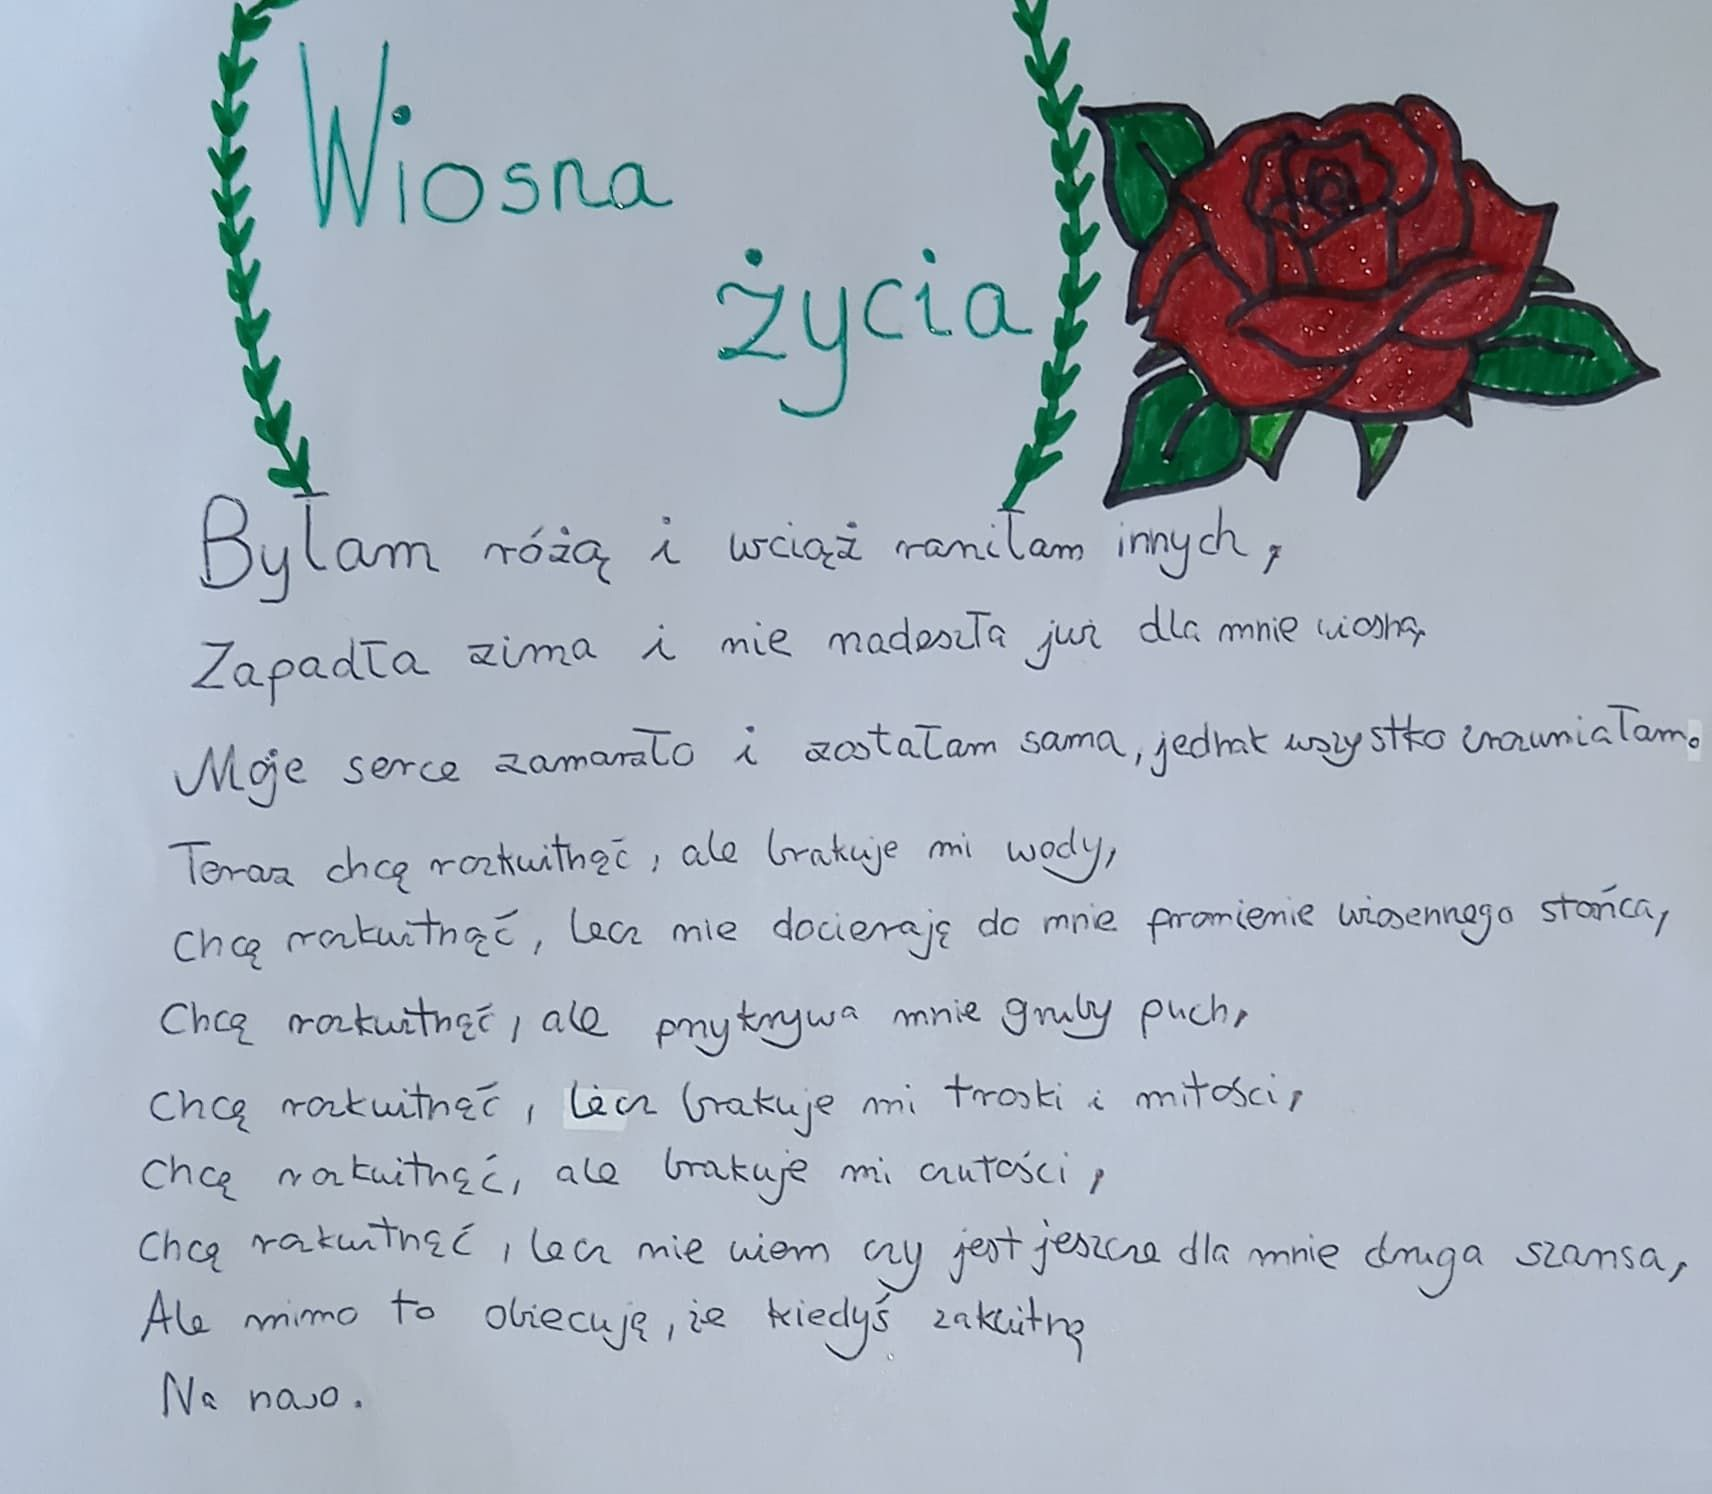 Wiosna
życia
Byłam różą i wciąż raniłam innych,
Zapadła zima i nie nadeszła już dla mnie wiosna,
Moje serce zamarzło i zostałam sama, jednak wszystko zrozumiałam.
Teraz chcę rozkwitnąć, ale brakuje mi wody,
Chcę rozkwitnąć, lecz nie docierają do mnie promienie wiosennego słońca,
Chcę rozkwitnąć, ale przykrywa mnie gruby puch,
Chcę rozkwitnąć, lecz brakuje mi troski i miłości,
Chcę rozkwitnąć, ale brakuje mi czułości,
Chcę rozkwitnąć, lecz nie wiem czy jest jeszcze dla mnie druga szansa,
Ale mimo to obiecuję, że kiedyś zakwitnę
Na nowo.